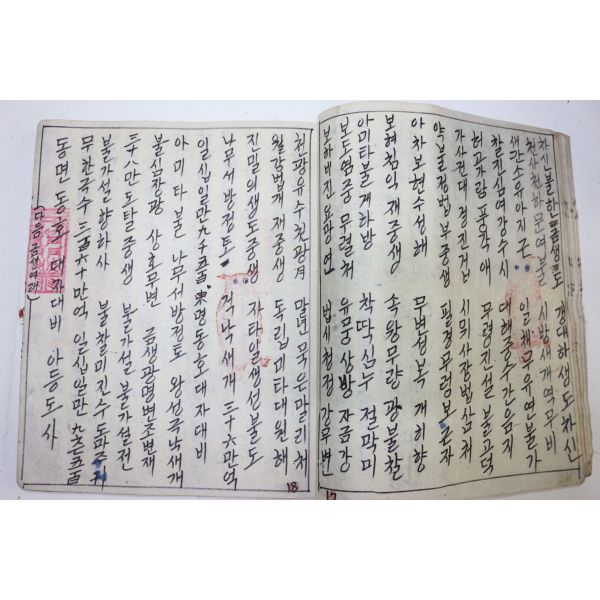 차신불한금생도 갱대하생도차신
천상천하무여불 시방세계역무비
생간소유아지근 일체무유연불가
찰진심염강수시 대해중수가음지
허공가량풍즉애 무령진설불고덕
가사전대경진겁 시위사장법삼처
약불전법부중생 필경무렁보은자
아차보현수성해 무변성복개히향
보혀침익재중생 속왕무량광불찰
아미타불계하방 착딱심누절막미
보도염중무렬처 유궁상방자금강
보하대진요랑연 법시청정강무변
처광유수천광겨 말년묵은말리처
월강법개재중생 독립미타대원해
진밀의생도중생 자타일생성불도
나무서방정토 걱낙세개三十六만억
일십일만九千五百東명동호대자대비
아미타불 나무서방정토 왕성극낙새개
불심장광 상호무변 금생광명변조변재
三十八만도탈중생 불가설 불드가설전
불가설향하사 불찰미진수도파주키
무한극수三百六十만억 일십일만九千五百
동면동호 대자대비 아등도사
(다음 금생여래)
18
17